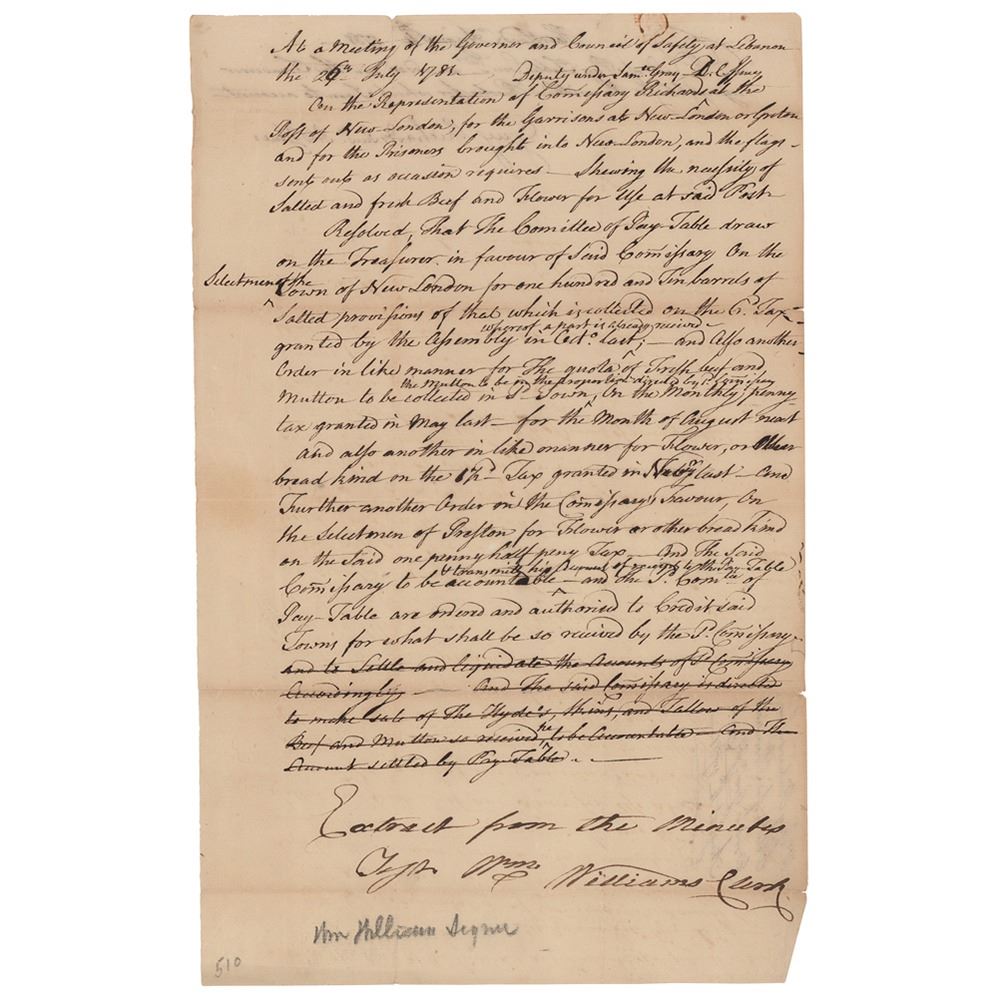 At a Meeting of the Governor and Council of Safety at Lebanon
the 26th July 1781.
Deputy under Saml Gray D. C. Issues
On the Representation of Comissary Richards at the
Post of New-London, for the Garrisons at New-London or Groton
and for the Prisoners brought into New-London, and the flags
sent out as occasion requires — Shewing the necessity of
Salted and fresh Beef and Flower for Use at said Post
Resolved, That the Comittee of Pay-Table draw
on the Treasurer in favour of Said Comissary On the
Selectmen of the
Town of New London for one hundred and Ten barrels of
Salted provisions of that which is collected on the 6. Tax
whereof a part is already received
granted by the Assembly in Octo. last; — and Also another
Order in like manner for The quota of Fresh beef and
the mutton to be in the proportion directed by sd. comissary
Mutton to be collected in sd. Town, On the Monthly penny
tax granted in May last — for the Month of August next
and also another in like manner for Flower, or Other
bread kind on the Tax granted in last — And
Further another Order in the Comissary's Favour On
the Selectmen of Preston for Flower or other bread kind
on the Said one penny half peny Tax — And The Said
& transmitt his Accounts of receipts to the Pay-Table
Comissary to be accountable — and the sd. Comtee of
Pay-Table are ordered and authorised to Credit said
Towns for what shall be so received by the sd. Comissary —
and to Settle and liquidate the Accounts of sd Comissary
Accordingly, — And The said Comissary is directed
to make sale of The Hyde's, skins, and Tallow of the
Beef and Mutton so received, he to be Accountable — And The
Account settled by Pay-Table . . —
Extract from the Minutes
Test Wm Williams Clerk
Wm Williams Signer
510